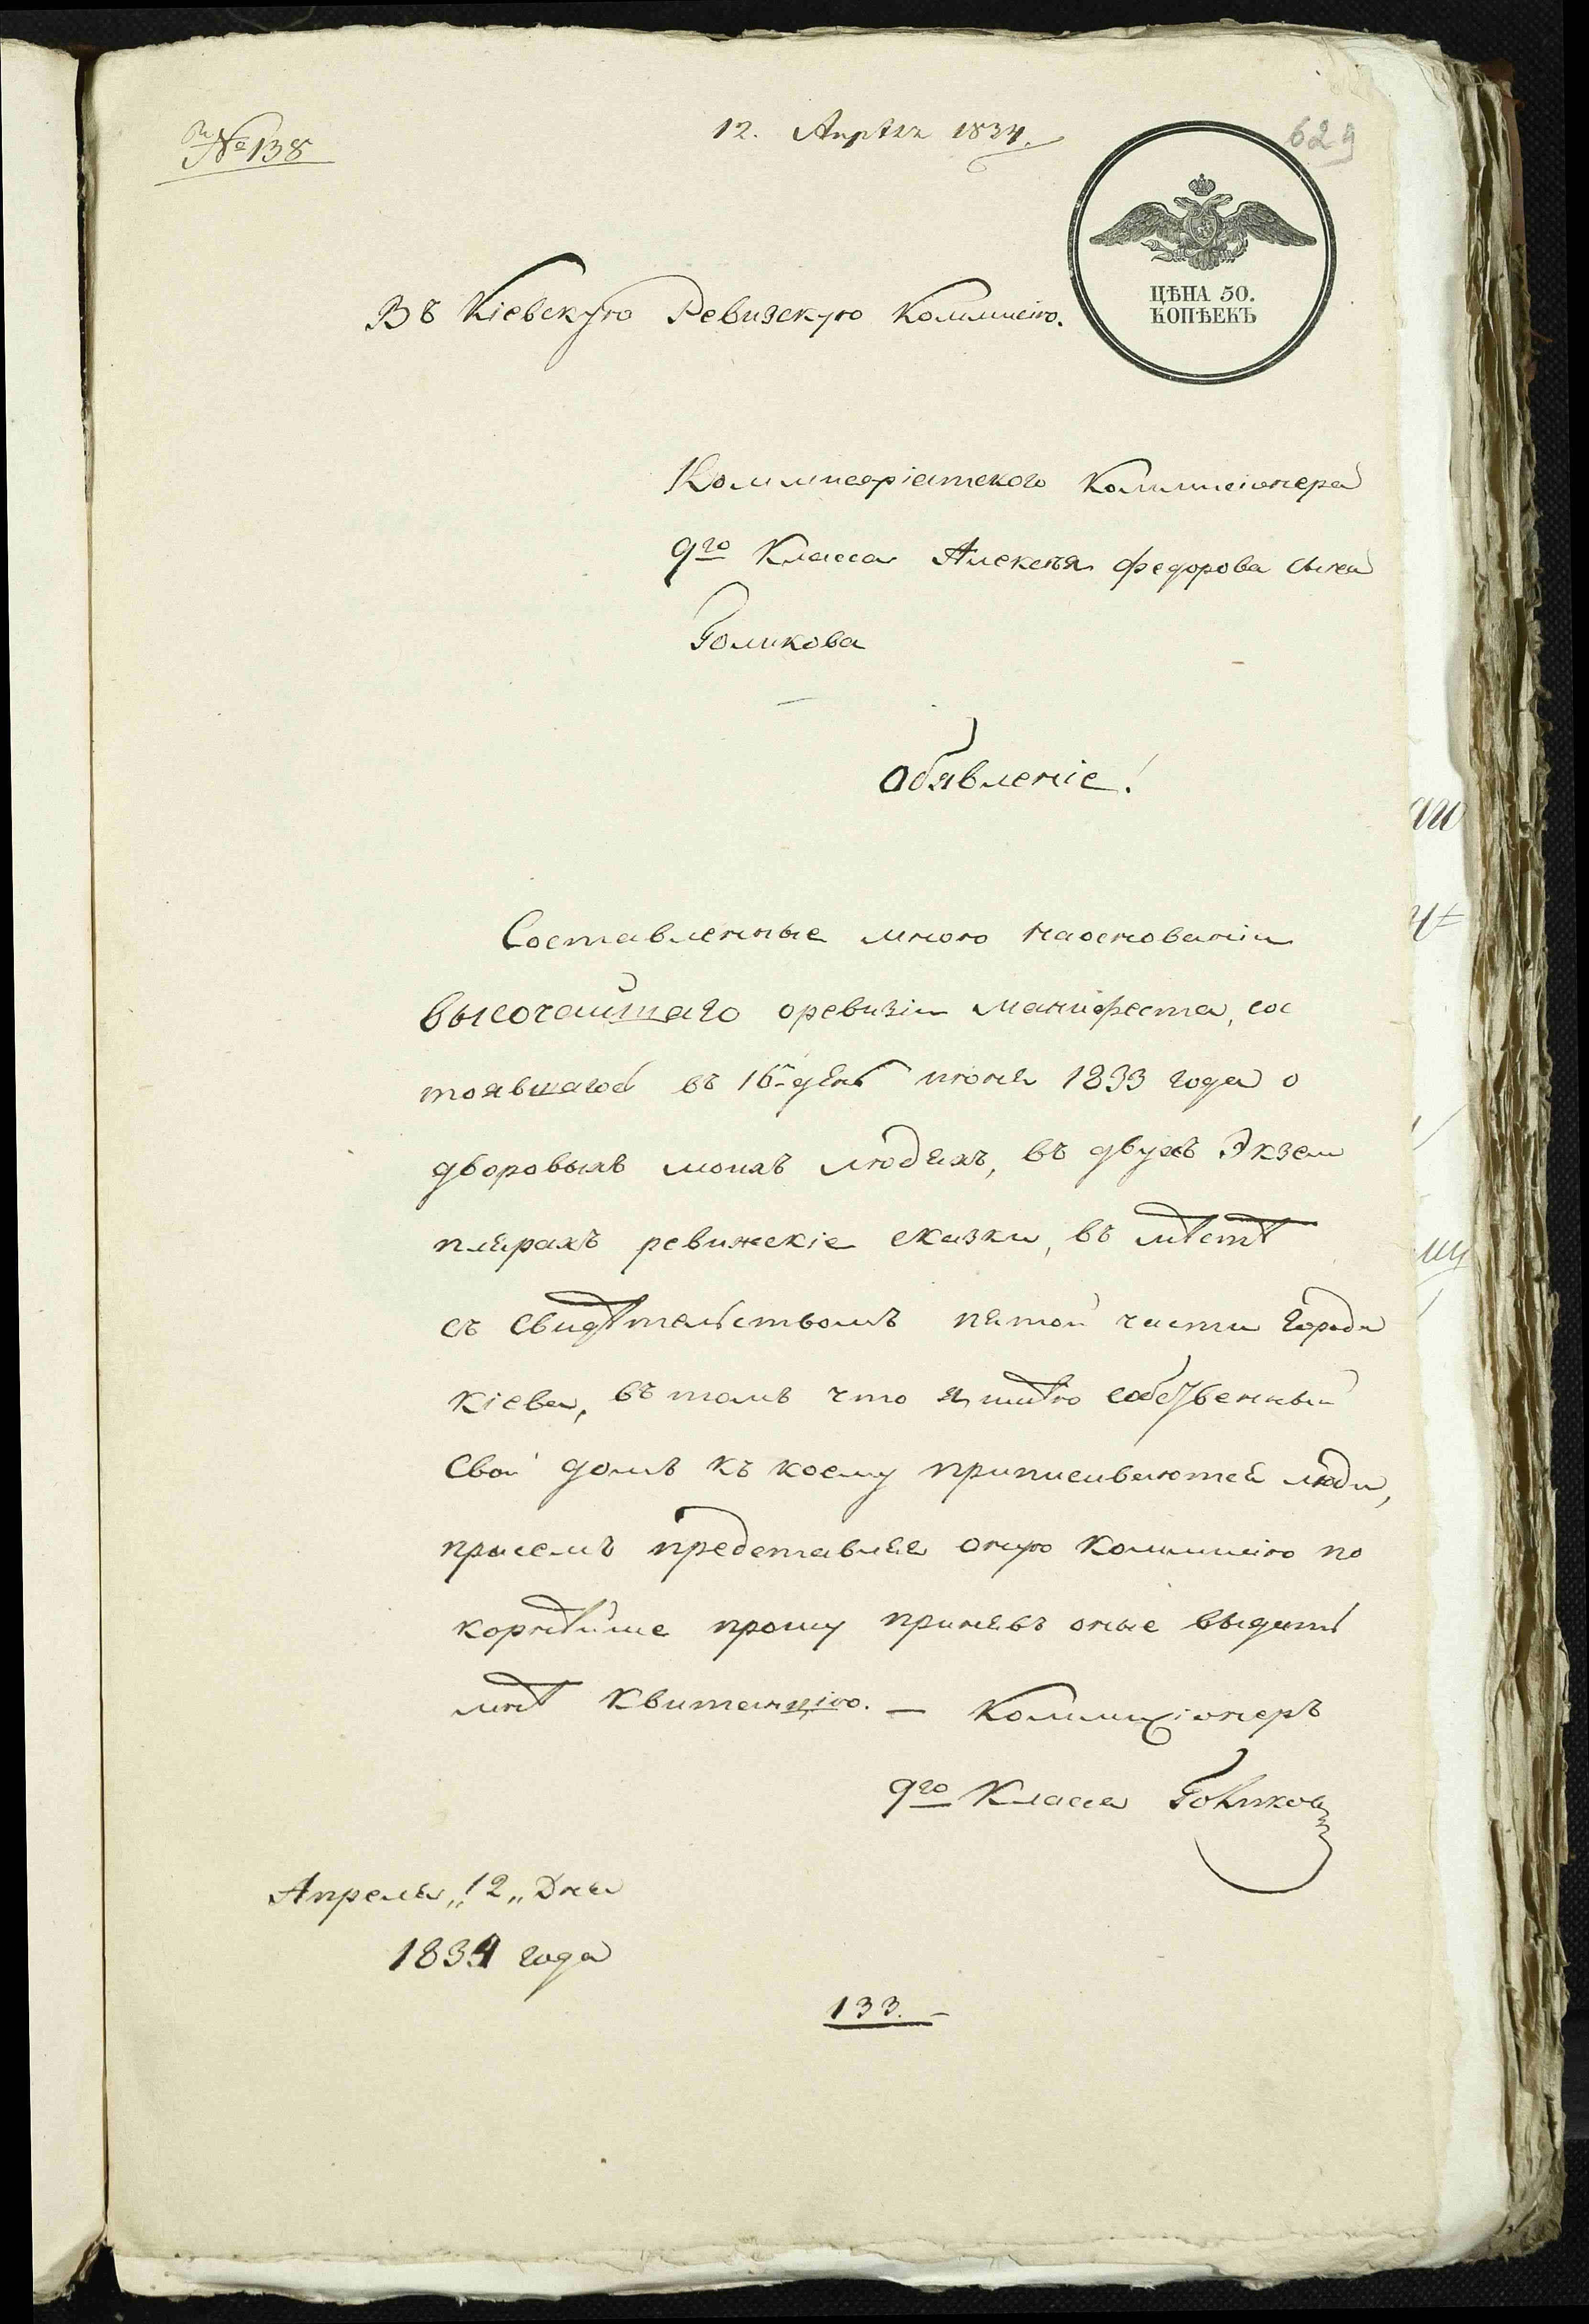 № 138
12. Апрѣля 1834.
629
ЦѢНА 50.
КОПѢЕКЪ
Въ Кіевскую Ревизскую Коммисію.
Коммисаріатского Коммисіонера
9го Класса Алексѣя Федорова сына
Голикова
Обявленіе!
Составленные мною наоснованіи
высочайшаго оревизіи манифеста, сос
тоявшагось въ 16й день июня 1833 года о
дворовыхъ моихъ людяхъ, въ двухъ Экзем
плярахъ ревижскіе сказки, въ мѣстѣ
съ свидѣтельствомъ пятой части города
Кіева, въ томъ что я имѣю собственный
свой домъ къ коему приписиваются люди,
присемъ представляя оную Коммисію по
корнѣйше прошу принявъ оные выдать
мнѣ квитанцію. — Коммисіонеръ
9го Класса Голиковъ
Апреля „12„ Дня
1834 года
133. –